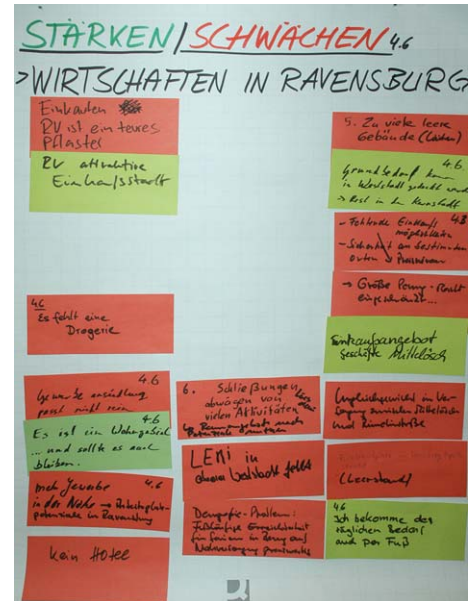 STÄRKEN/SCHWÄCHEN 4.6
>WIRTSCHAFTEN IN RAVENSBURG
Einkaufen
RV ist ein teures
Pflaster
RV attraktive
Einkaufsstadt
4.6
Es fehlt eine
Drogerie
Gewerbeansiedlung 4.6
passt nicht rein
4.6
Es ist ein Wohngebiet
... und sollte es auch
bleiben.
mehr Gewerbe 4.6
in der Nähe → Arbeitsplatz-
potenziale in Ravensburg
kein Hotel
6. Schließungen
abwägen von
vielen Aktivitäten
LEMI in
oberer Weststadt fehlt
Demografie-Problem:
für Senioren in Bezug auf
Nahversorgung
5. Zu viele leere
Gebäude
4.6
Grundbedarf kann
in Weststadt gedeckt werden
→ Rest in der Kernstadt
4.3
- Fehlende Einkaufs
möglichkeiten
- Sicherheit an bestimmten
Orten
→ Große Penny-Markt
eingeschränkt...
Einkaufsangebot
Geschäfte Mittelösch
Ungleichgewicht in Ver-
sorgung zwischen Mittelösch
und
(Leerstand)
4.6
Ich bekomme den
täglichen Bedarf
auch per Fuß